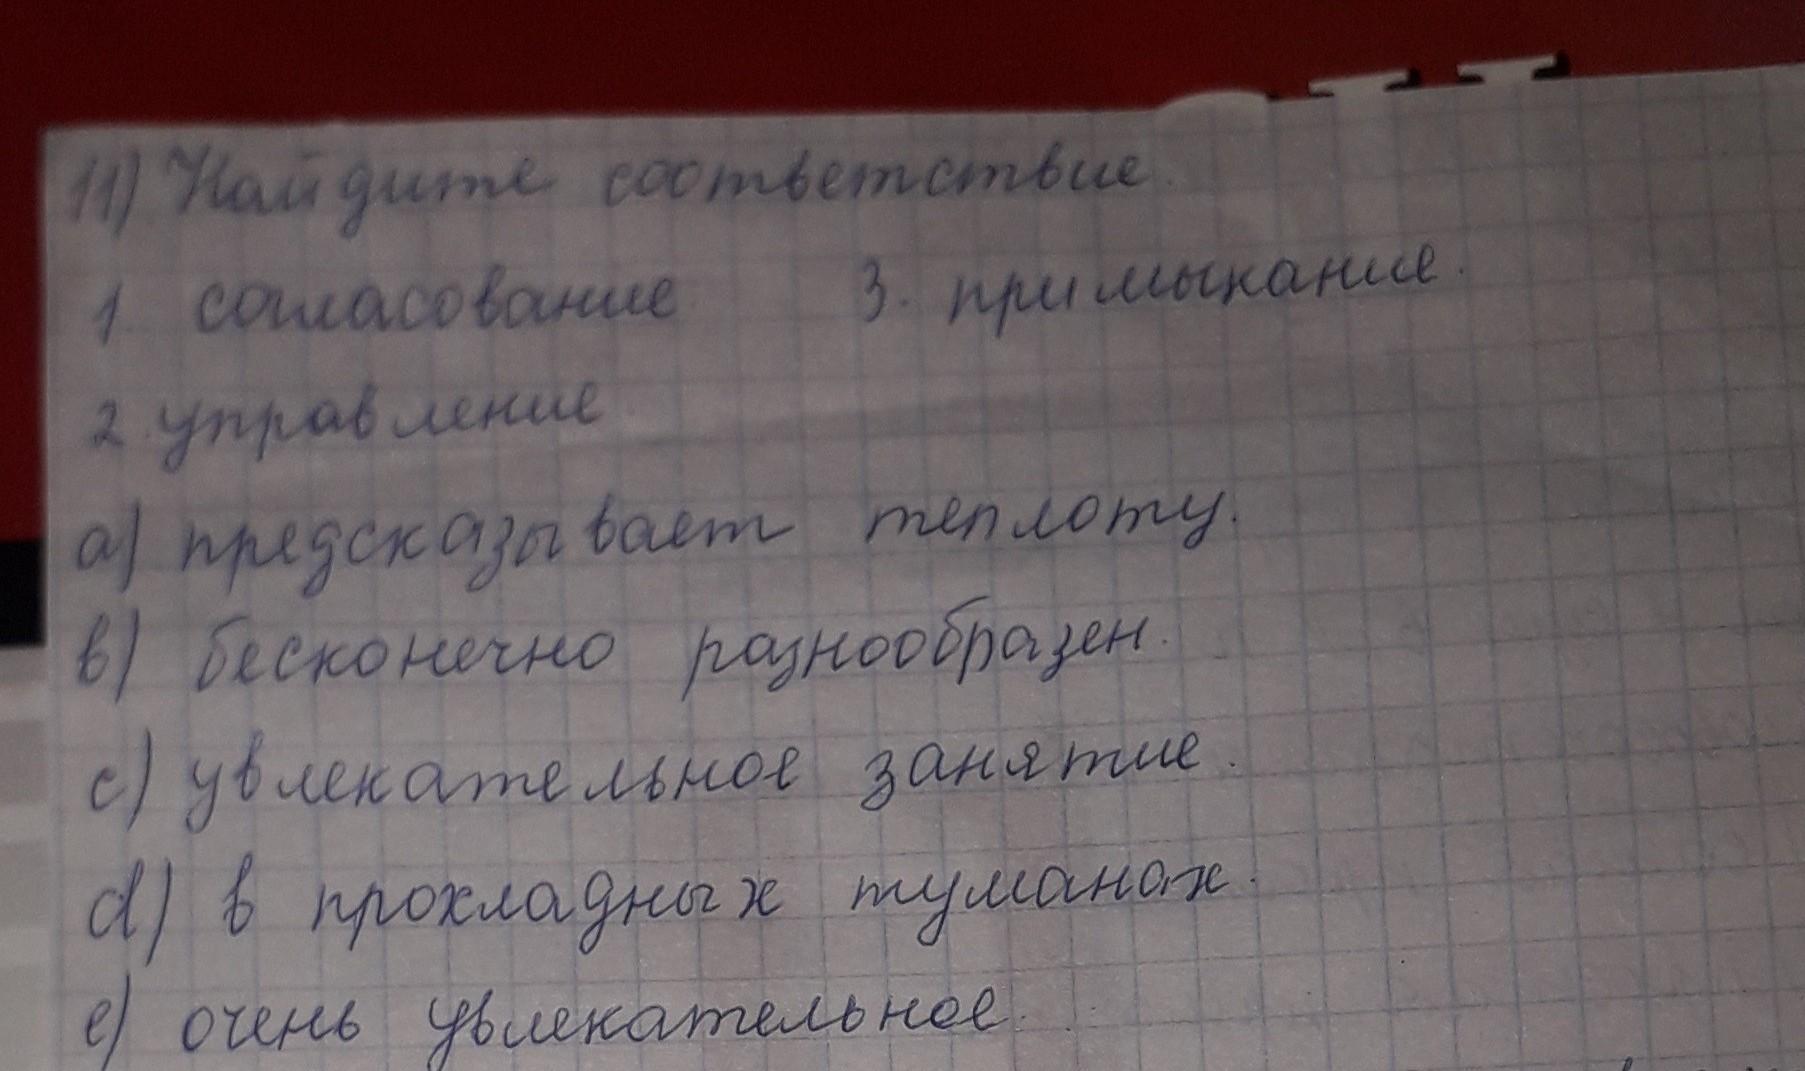 11) Найдите соответствие.
1. согласование 3. примыкание.
2. управление
a) предсказывает теплоту.
b) бесконечно разнообразен.
c) увлекательное занятие.
d) в прохладных туманах.
e) очень увлекательное.